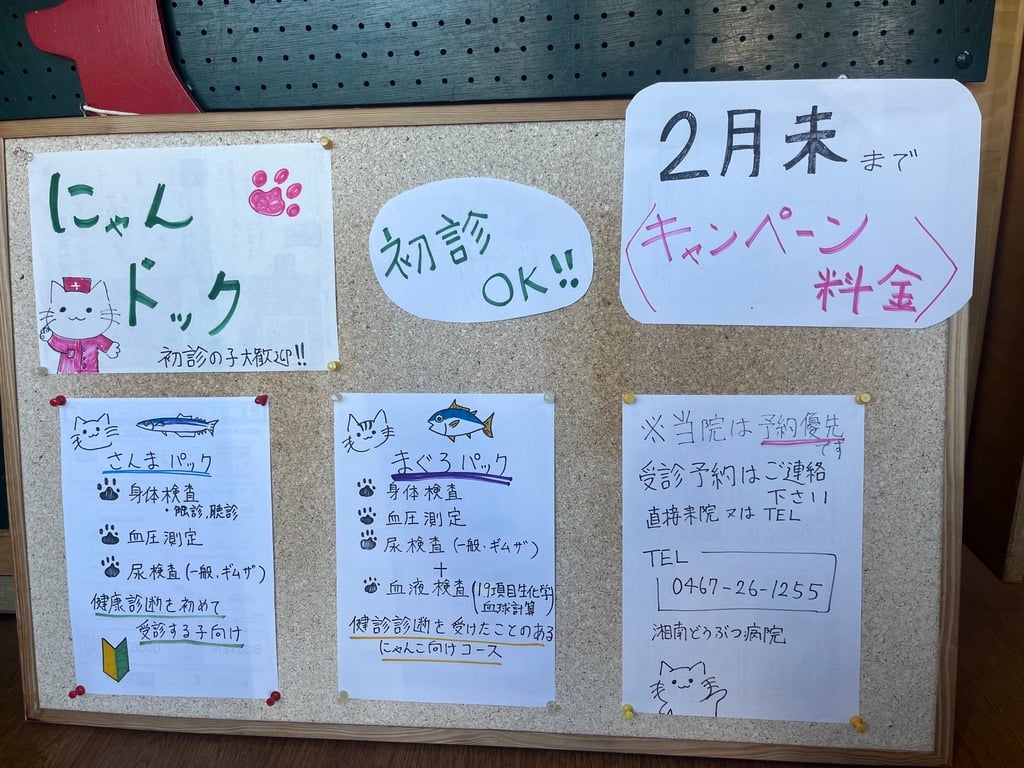 にゃん
ドック
初診の子大歓迎!!
初診
OK!!
2月末まで
〈キャンペーン
料金〉
さんまパック
身体検査
・視診,聴診
血圧測定
尿検査(一般,ギムザ)
健康診断を初めて
受診する子向け
まぐろパック
身体検査
血圧測定
尿検査(一般,ギムザ)
+
血液検査(19項目生化学
血球計算)
健診診断を受けたことのある
にゃんこ向けコース
※当院は予約優先
です
受診予約はご連絡
下さい
直接来院又はTEL
TEL
0467-26-1255
湘南どうぶつ病院